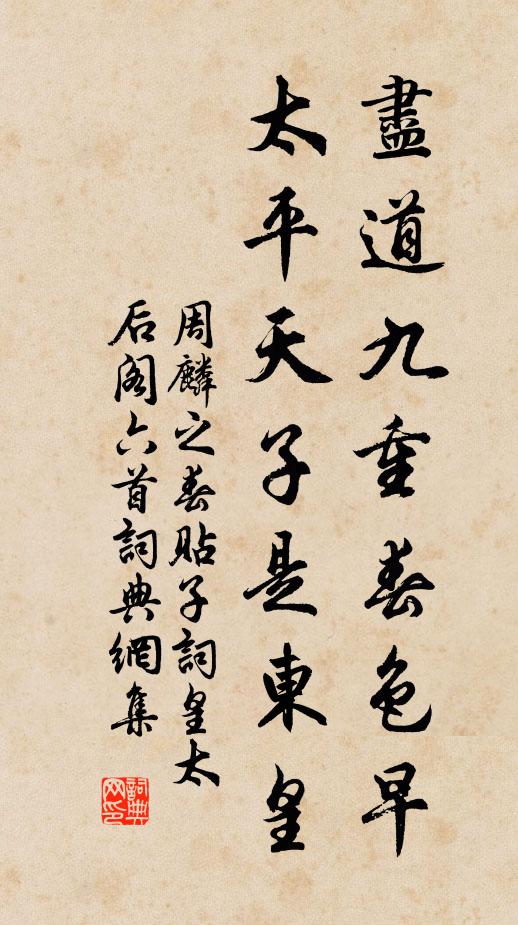 盡道九重春色早
太平天子是東皇
周麟之春貼子詞皇太
后閣六首詞典網集
詞典
网印